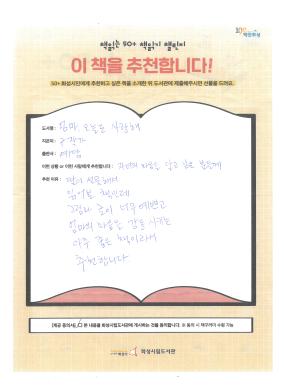 책읽는 50+ 책읽기 챌린지
이 책을 추천합니다!
50+ 화성시민에게 추천하고 싶은 책을 소개한 뒤 도서관에 제출해주시면 선물을 드려요.
도서명 : 엄마, 오늘도 사랑해
지은이 : 구작가
출판사 : 예담
이런 상황 or 이런 사람에게 추천합니다 : 자녀의 마음을 알고 싶은 분들께
추천 이유 : 딸이 선물해줘서
읽어본 책인데
그림과 글이 너무 예쁘고
엄마의 마음을 감동시키는
아주 좋은 책이라서
추천합니다
본 내용을 화성시립도서관에 게시하는 것을 동의합니다.
화성시립도서관